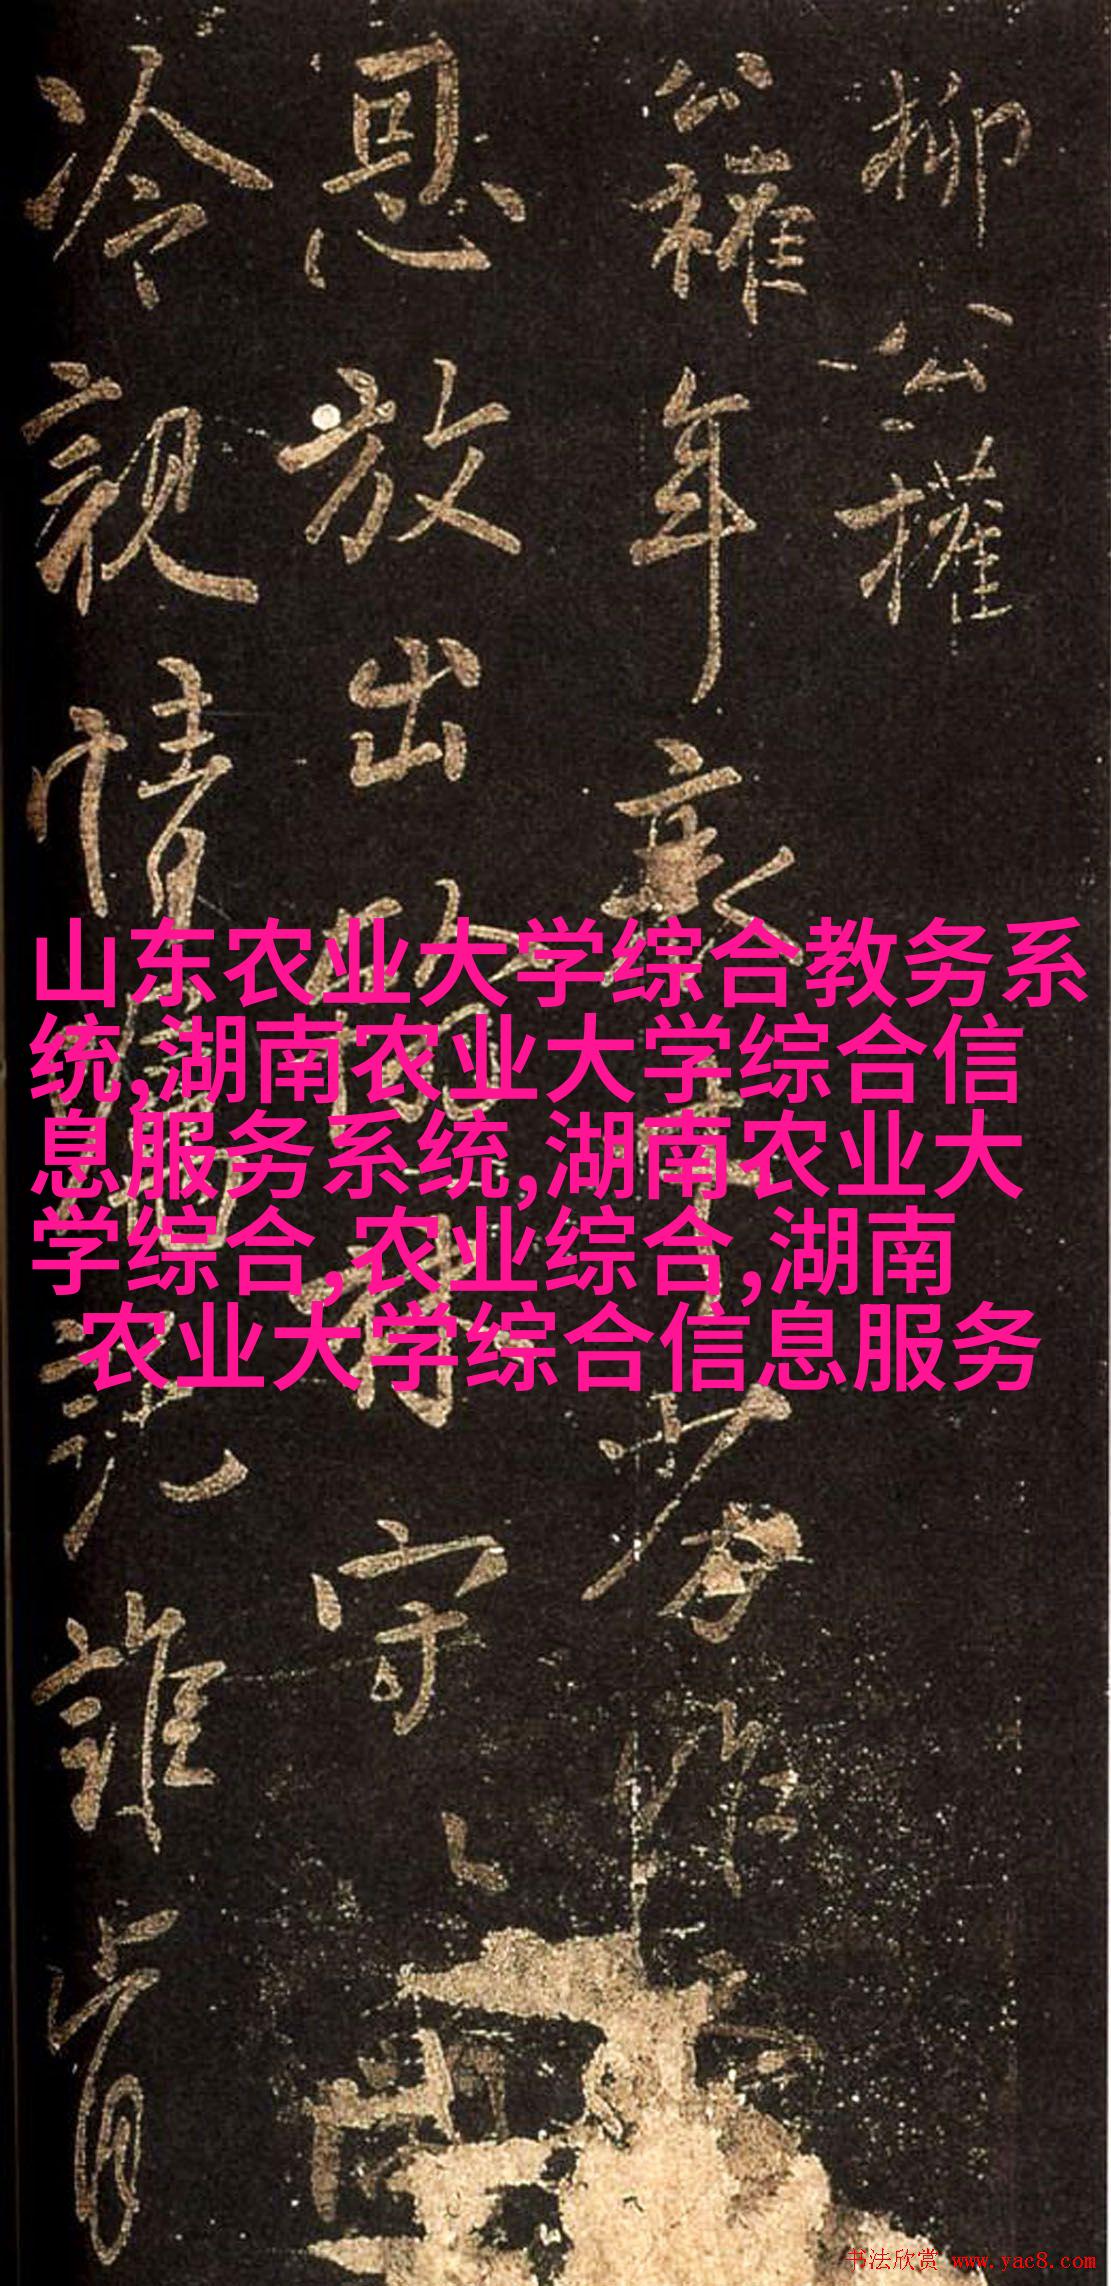 柳公權
公權年衰劣昨
恩放出守
冷親情誰肯
山东农业大学综合教务系
统,湖南农业大学综合信
息服务系统,湖南农业大
学综合,农业综合,湖南
农业大学综合信息服务
书法欣赏 www.yac8.com